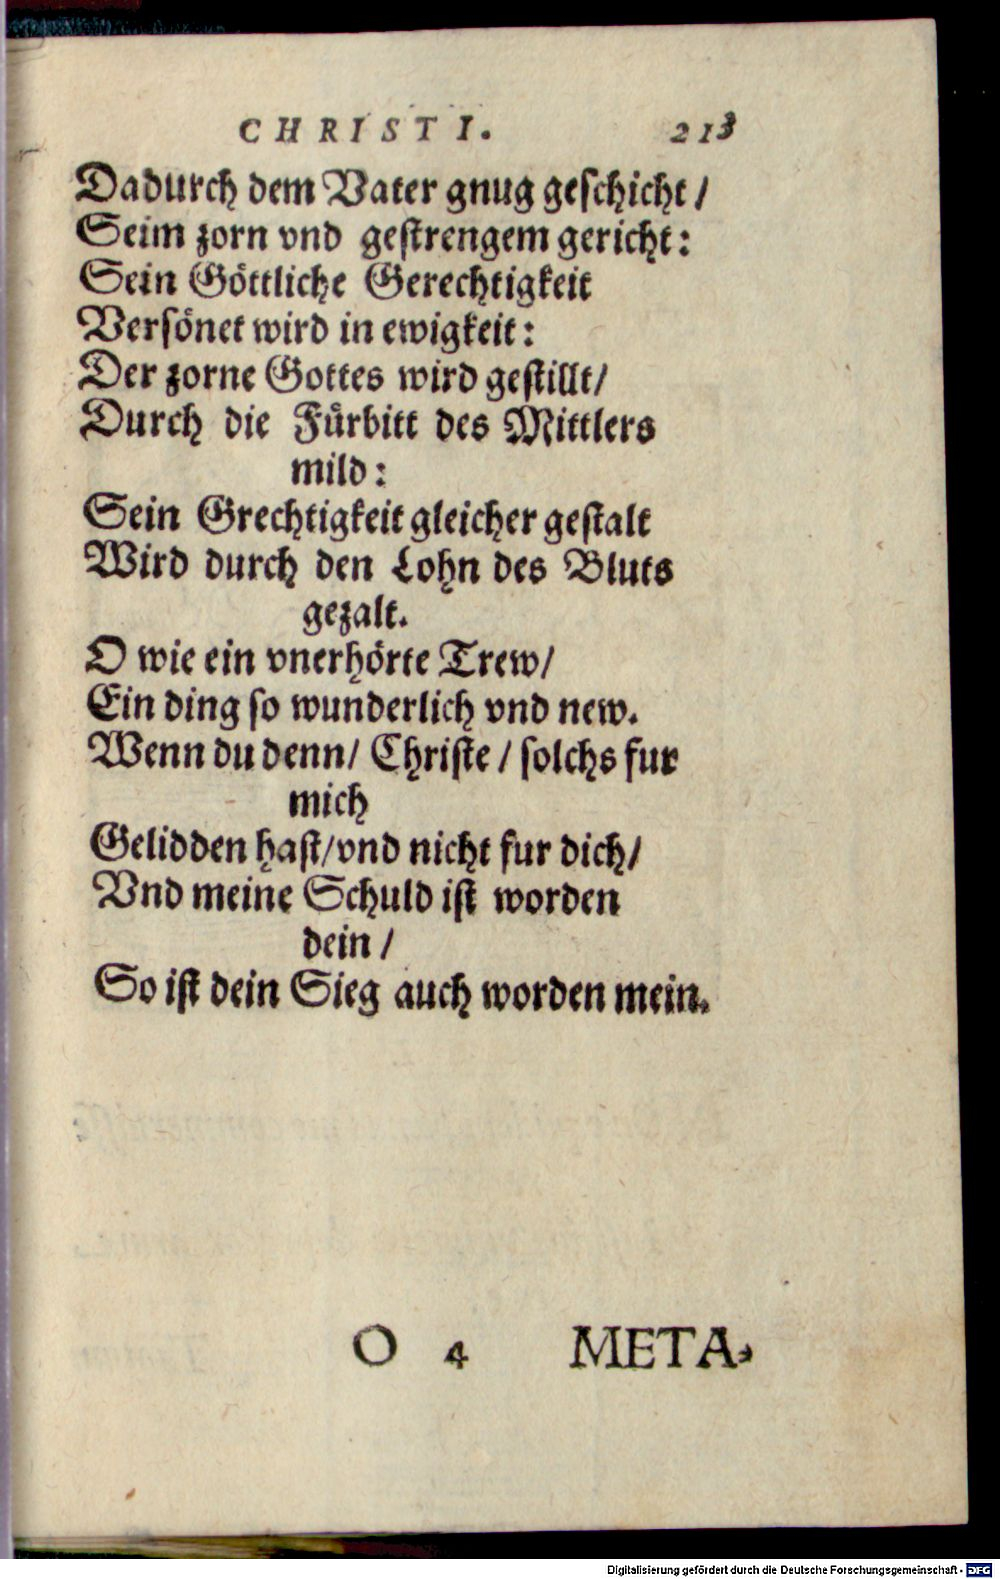 CHRISTI. 213
Dadurch dem Vater gnug geschicht /
Seim zorn vnd gestrengem gericht:
Sein Göttliche Gerechtigkeit
Versönet wird in ewigkeit:
Der zorne Gottes wird gestillt/
Durch die Fürbitt des Mittlers
mild:
Sein Grechtigkeit gleicher gestalt
Wird durch den Lohn des Bluts
gezalt.
O wie ein vnerhörte Trew/
Ein ding so wunderlich vnd new.
Wenn du denn/ Christe / solchs fur
mich
Gelidden hast/vnd nicht fur dich/
Vnd meine Schuld ist worden
dein /
So ist dein Sieg auch worden mein.
O 4 META-
Digitalisierung gefördert durch die Deutsche Forschungsgemeinschaft - DFG